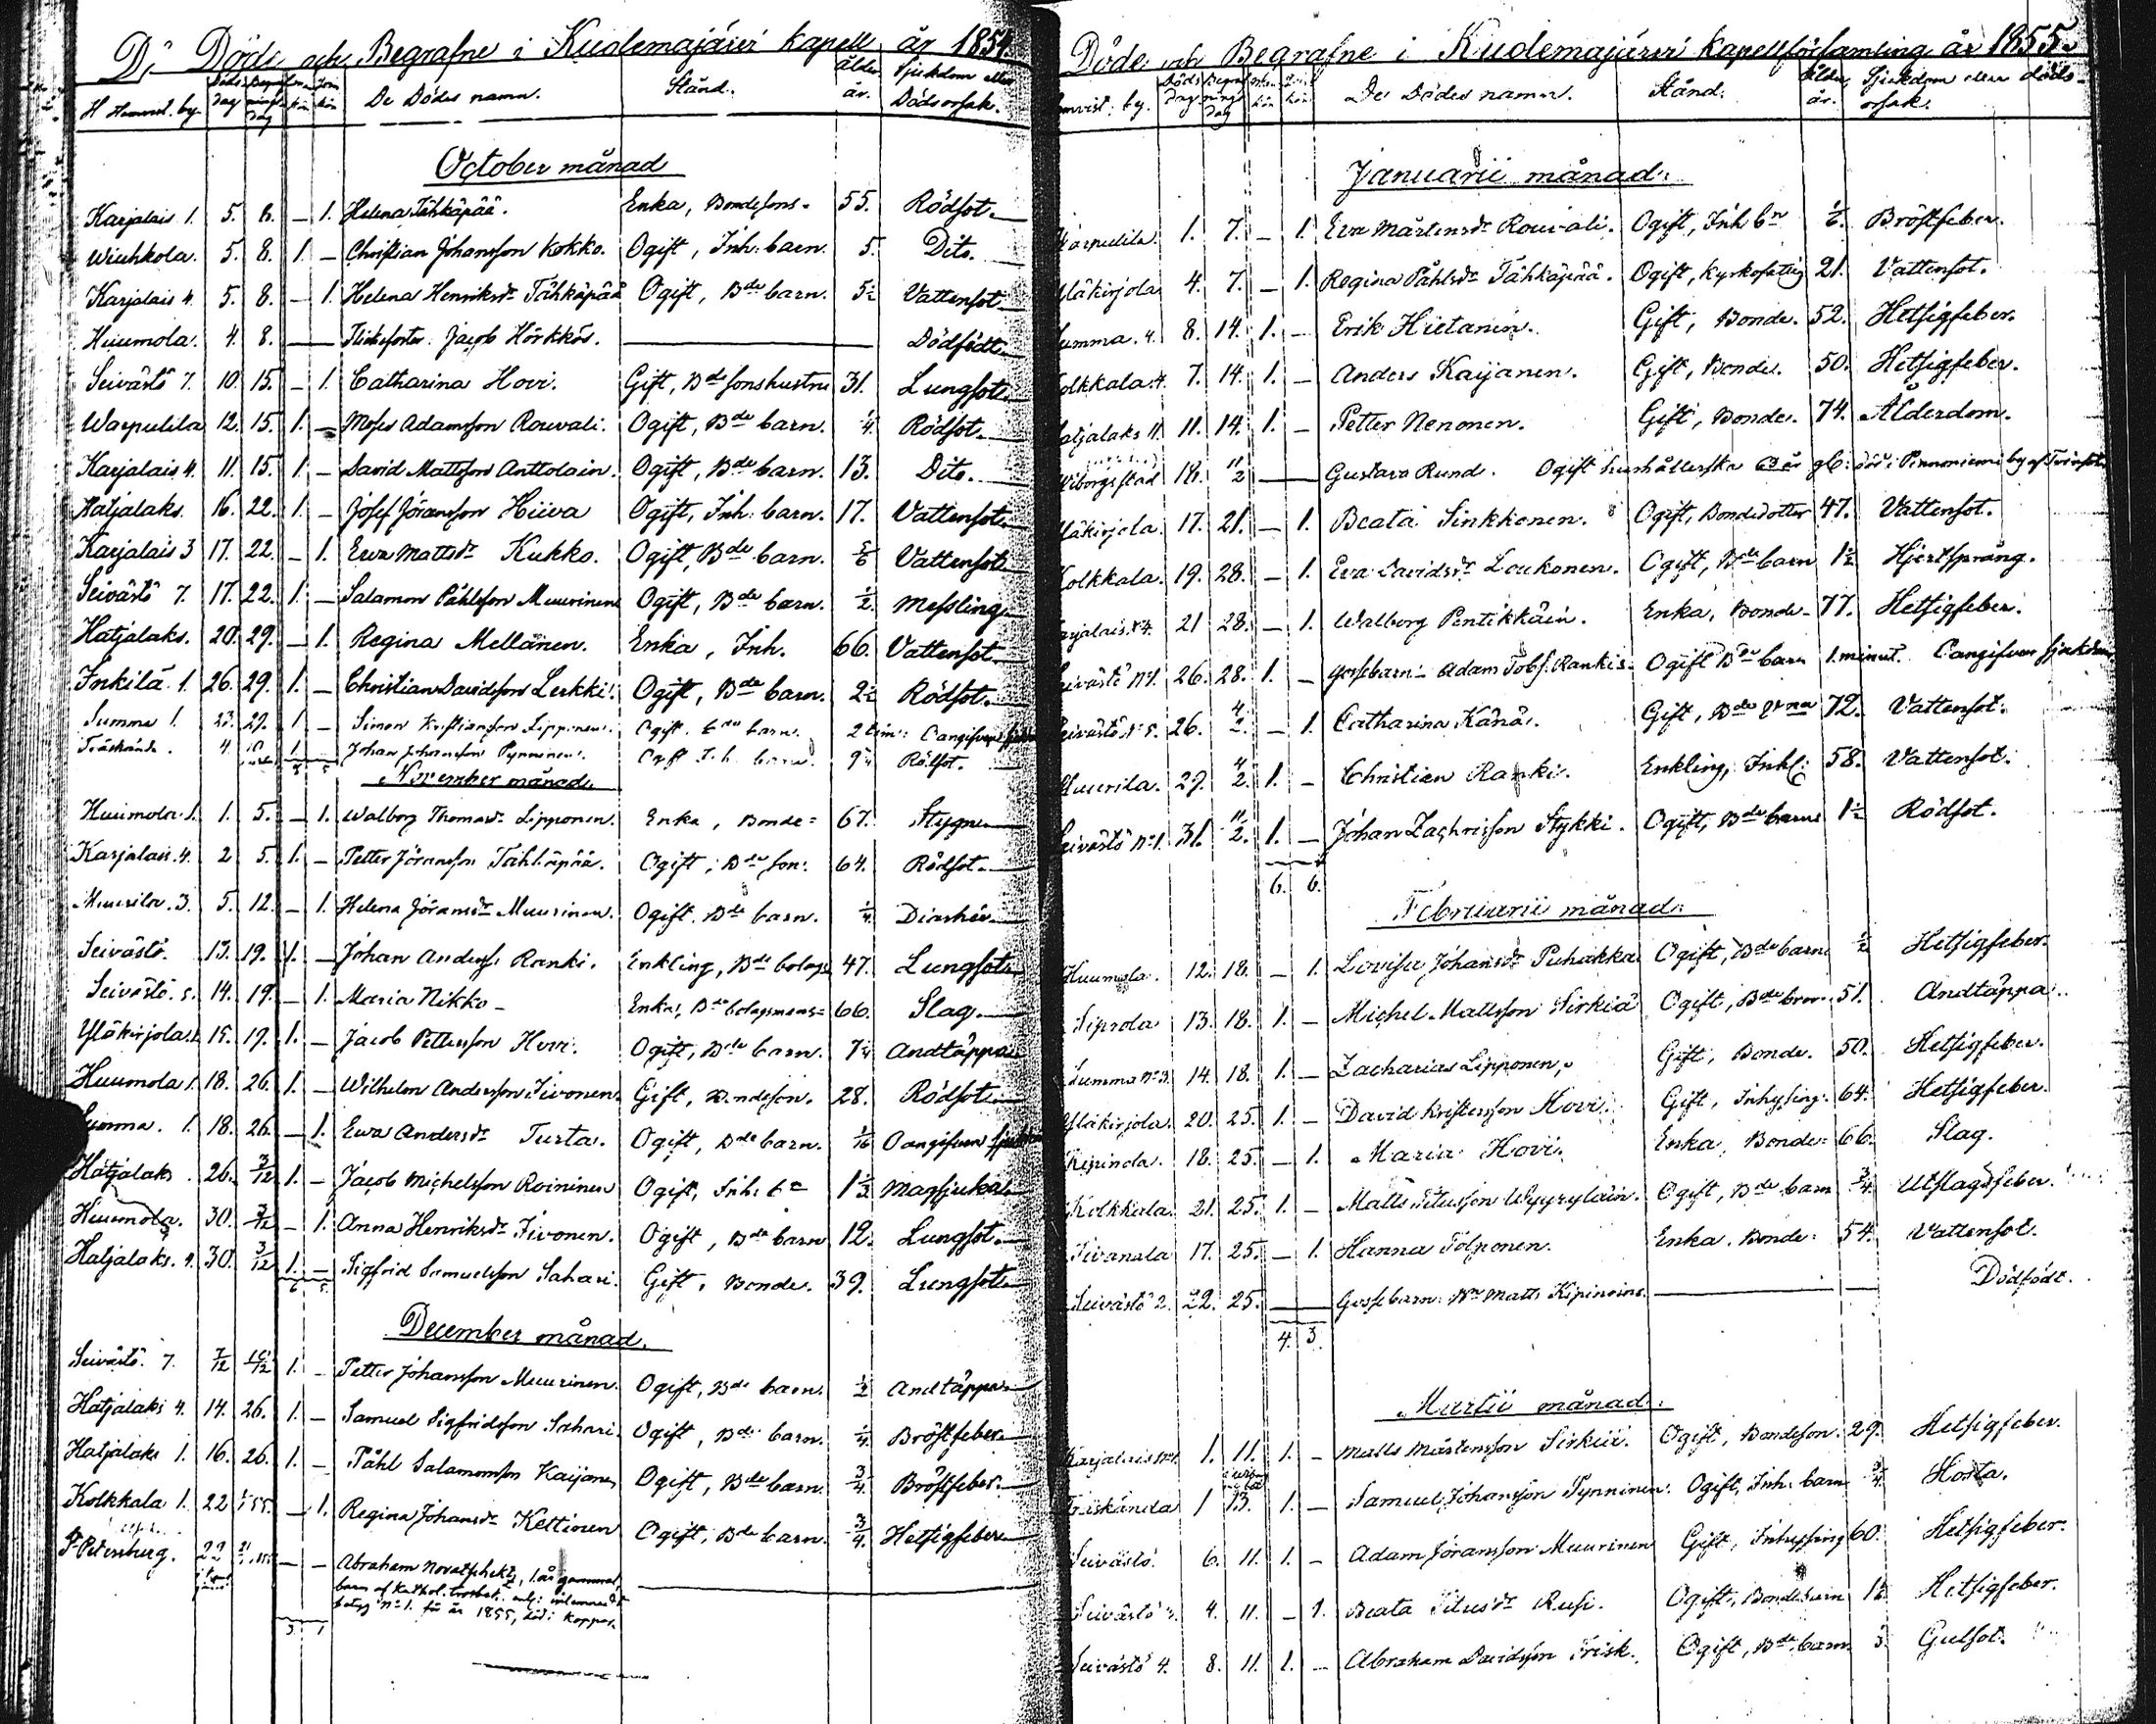 Döde och Begrafne i Kuolemajärvi kapell år 1854.
Hemvist. by. Döds dag Begrafnings dag Man kön Qvin kön De Dödes namn. Stånd. Ålder år. Sjukdom eller Dödsorsak.
October månad
Karjalais 1. 5. 6. – 1. Helena Tähkäpää. Enka, Bondesons- 55. Rödsot.
Wiuhkola. 5. 8. 1. – Christian Johansson Kokko. Ogift, Inh. barn. 5. Dito.
Karjalais 4. 5. 8. – 1. Helena Henriksdr Tähkäpää Ogift, Bde barn. 5½ Vattensot
Huumola. 4. 8. — Jacob Hörkkös. — Dödfödt
Seivästö 7. 10. 15. – 1. Catharina Hovi. Gift, Bde sonshustru 31. Lungsot
Warpulila 12. 15. 1. – Moses Adamsson Rouvali. Ogift, Bde barn. ¼ Rödsot.
Karjalais 4. 11. 15. 1. – David Mattsson Anttolain. Ogift, Bde barn. 13. Dito.
Hatjalaks. 16. 22. 1. – Josef Jöransson Hiiva Ogift, Inh. barn. 17. Vattensot
Karjalais 3 17. 22. – 1. Ewa Mattsdr Kukko. Ogift, Bde barn. 5/6 Vattensot
Seivästö 7. 17. 22. 1. – Salamon Påhlsson Muurinen Ogift, Bde barn. ½. Messling
Hatjalaks. 20. 29. – 1. Regina Mellänen. Enka, Inh. 66. Vattensot
Inkilä 1. 26. 29. 1. – Christian Davidsson Lerkki. Ogift, Bde barn. 2½ Rödsot.
Summa 1. 27. 29. 1 – Simon Kristiansson Lipponen. Ogift. Bde barn. 2 tim: Oangifven
4 1 – Johan Johansson Pynninen. Ogift Inh. barn. Rödsot.
5 5
November månad.
Huumola. 1. 1. 5. – 1. Walborg Thomasdr Lipponen. Enka, Bonde= 67. Stygn
Karjalais. 4. 2 5. 1. – Petter Jöransson Tähkäpää. Ogift, Bde son. 64. Rödsot.
Muurila. 3. 5. 12. – 1. Helena Jöransdr Muurinen. Ogift. Bde barn. ¼ Diarhé
Seivästö. 13. 19. 1. – Johan Anderss. Ranki. Enkling, Bde bolags 47. Lungsot
Seivästö. 5. 14. 19. – 1. Maria Nikko – Enka, Bde bolagsmans= 66. Slag.
Yläkirjola. 15. 19. 1. – Jacob Pettersson Hovi. Ogift, Bde barn. 7¼ Andtäppa
Huumola 1. 18. 26. 1. – Wilhelm Andersson Sivonen. Gift, Bondeson. 28. Rödsot
Summa. 1. 18. 26. – 1. Ewa Andersdr Turta. Ogift, Bde barn. Oangifven
Hatjalaks. 26. 3/12 1. – Jacob Michelsson Roininen Ogift, Inh: bn 1⅓ Magsjuka
Huumola. 30. 3/12 – 1. Anna Henriksdr Sivonen. Ogift, Bde barn 12. Lungsot.
Hatjalaks. 4. 30. 3/12 1. – Sigfrid Samuelsson Sahari. Gift, Bonde. 39. Lungsot
6 5.
December månad.
Seivästö. 7. 7/12 10/12 1. – Petter Johansson Muurinen. Ogift, Bde barn. ½ Andtäppa
Hatjalaks 4. 14. 26. 1. – Samuel Sigfridsson Sahari Ogift, Bde barn. ¼ Bröstfeber
Hatjalaks 1. 16. 26. 1. – Påhl Salamonsson Kaijanen Ogift, Bde barn. ¾ Bröstfeber.
Kolkkala 1. 22 55. – 1. Regina Johansdr Kettinen Ogift, Bde barn. ¾. Hetsigfeber
St Petersburg. 22 – – Abraham 1. år gammal,
barn af Kathol.
betyg No 1. för år 1855, död i koppor.
3 1
Döde och Begrafne i Kuolemajärvi kapellförsamling år 1855.
Hemvist: by. Döds dag Begrafnings dag De Dödes namn. Stånd. Ålder år. Sjukdom eller döds-orsak.
Januarii månad.
Warpulila. 1. 7. – 1. Eva Mårtensdr Rouvali. Ogift, Inh bn Bröstfeber.
Yläkirjola 4. 7. – 1. Regina Påhlsdr Tähkäpää. Ogift, Kyrkofattig 21. Vattensot.
Summa. 4. 8. 14. 1. – Erik Hietanin. Gift, Bonde. 52. Hetsigfeber.
Kolkkala. 4. 7. 14. 1. – Anders Kaijanen. Gift, Bonde. 50. Hetsigfeber.
Hatjalaks 11. 11. 14. 1. – Petter Nenonen. Gift, Bonde. 74. Ålderdom.
Wiborgs stad 18. 11/2 — Gustava Rund. Ogift hushållerska 63 år gl: död i by af
Yläkirjola. 17. 21. – 1. Beata Sinkkonen. Ogift, Bondedotter 47. Vattensot.
Kolkkala. 19. 28. – 1. Eva Davidsdr Loukonen. Ogift, Bde barn 1½ Hjertsprång.
Karjalais. 4. 21 28. – 1. Walborg Pentikkäin. Enka, Bonde- 77. Hetsigfeber.
Seivästö No 1. 26. 28. 1. – Gossebarn – Adam Tobs. Rankis Ogift Bde barn 1. minut. Oangifven sjukdom
Seivästö No 5. 26. 4/2. – 1. Catharina Känä. Gift, Bde 72. Vattensot.
Muurila. 29. 4/2. 1. – Christian Ranki. Enkling, Inh: 58. Vattensot.
Seivästö No 1. 31. 11/2. 1. – Johan Zachrisson Stykki. Ogift, Bde barn 1½ Rödsot.
6. 6.
Februarii månad.
Huumola. 12. 18. – 1. Lovisa Johansdr Puhakka Ogift, Bde barn ½ Hetsigfeber.
Sipsola 13. 18. 1. – Michel Mattsson Sirkiä Ogift, Bde bror. 51. Andtäppa.
Summa No 3. 14. 18. 1. – Zacharias Lipponen. Gift, Bonde. 50. Hetsigfeber.
Yläkirjola. 20. 25. 1. – David Kristersson Hovi. Gift, Inhysing. 64. Hetsigfeber.
Kipinola. 18. 25. – 1. Maria Hovi. Enka, Bonde= 66. Slag.
Kolkkala 21. 25. 1. – Matts Titusson Wyyryläin. Ogift, Bde barn ¾. Utslagsfeber.
Sivanala 17. 25. – 1. Hanna Tölponen. Enka. Bonde. 54. Vattensot.
Seivästö 2. 22. 25. — Gossebarn. Matts Kipinoine. — Dödfödt.
4. 3.
Martii månad.
Karjalais No 1. 1. 11. 1. – Matts Mårtensson Sirkiä. Ogift, Bondeson. 29. Hetsigfeber.
1 13. 1. – Samuel Johansson Pynninen. Ogift, Inh. barn ¾. Hosta.
Seivästö. 6. 11. 1. – Adam Jöransson Muurinen Gift, Inhysing 60. Hetsigfeber.
Seivästö 4. 11. – 1. Beata Titusdr Rusi. Ogift, Bondebarn 1½ Hetsigfeber.
Seivästö 4. 8. 11. 1. – Abraham Davidsson Frisk. Ogift, Bde barn. 3 Gulsot.